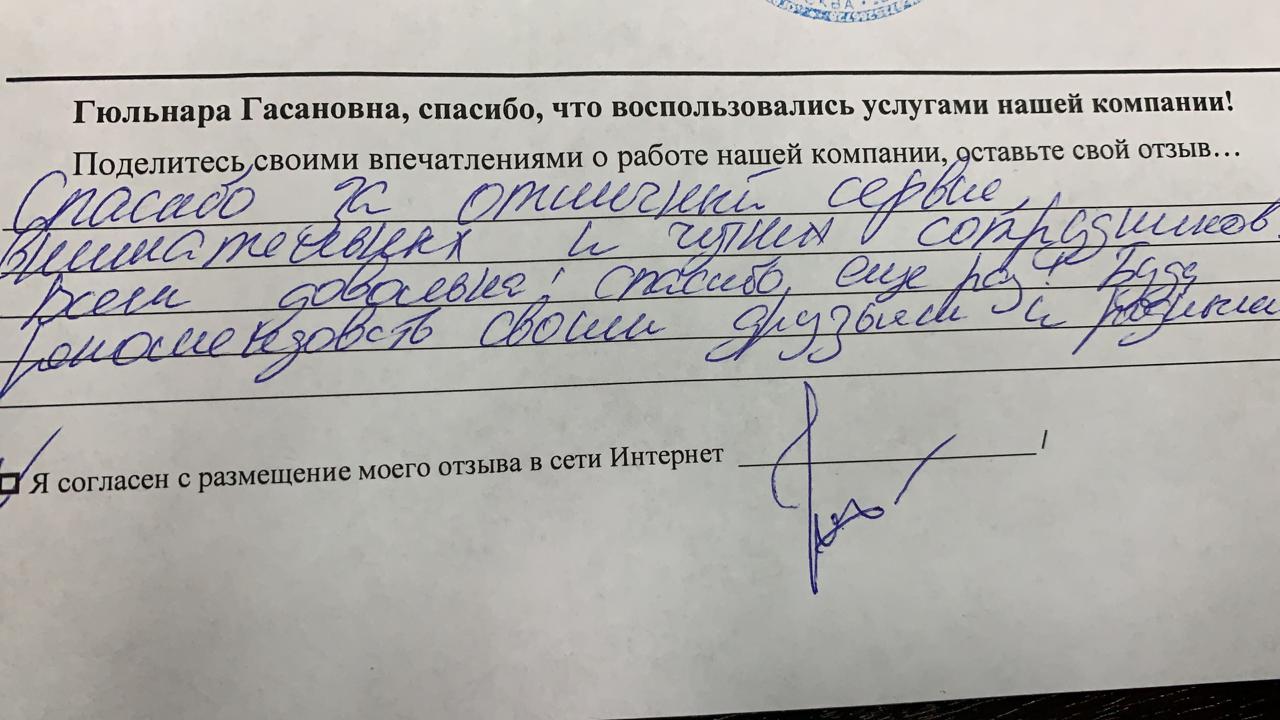 МОСКВА
Гюльнара Гасановна, спасибо, что воспользовались услугами нашей компании!
Поделитесь своими впечатлениями о работе нашей компании, оставьте свой отзыв…
Спасабо за отличный сервис,
внимательных и чутких сотрудников.
Всем довольна! Спасибо еще раз! Буду
рекомендовать своим друзьям и родным
Я согласен с размещение моего отзыва в сети Интернет /